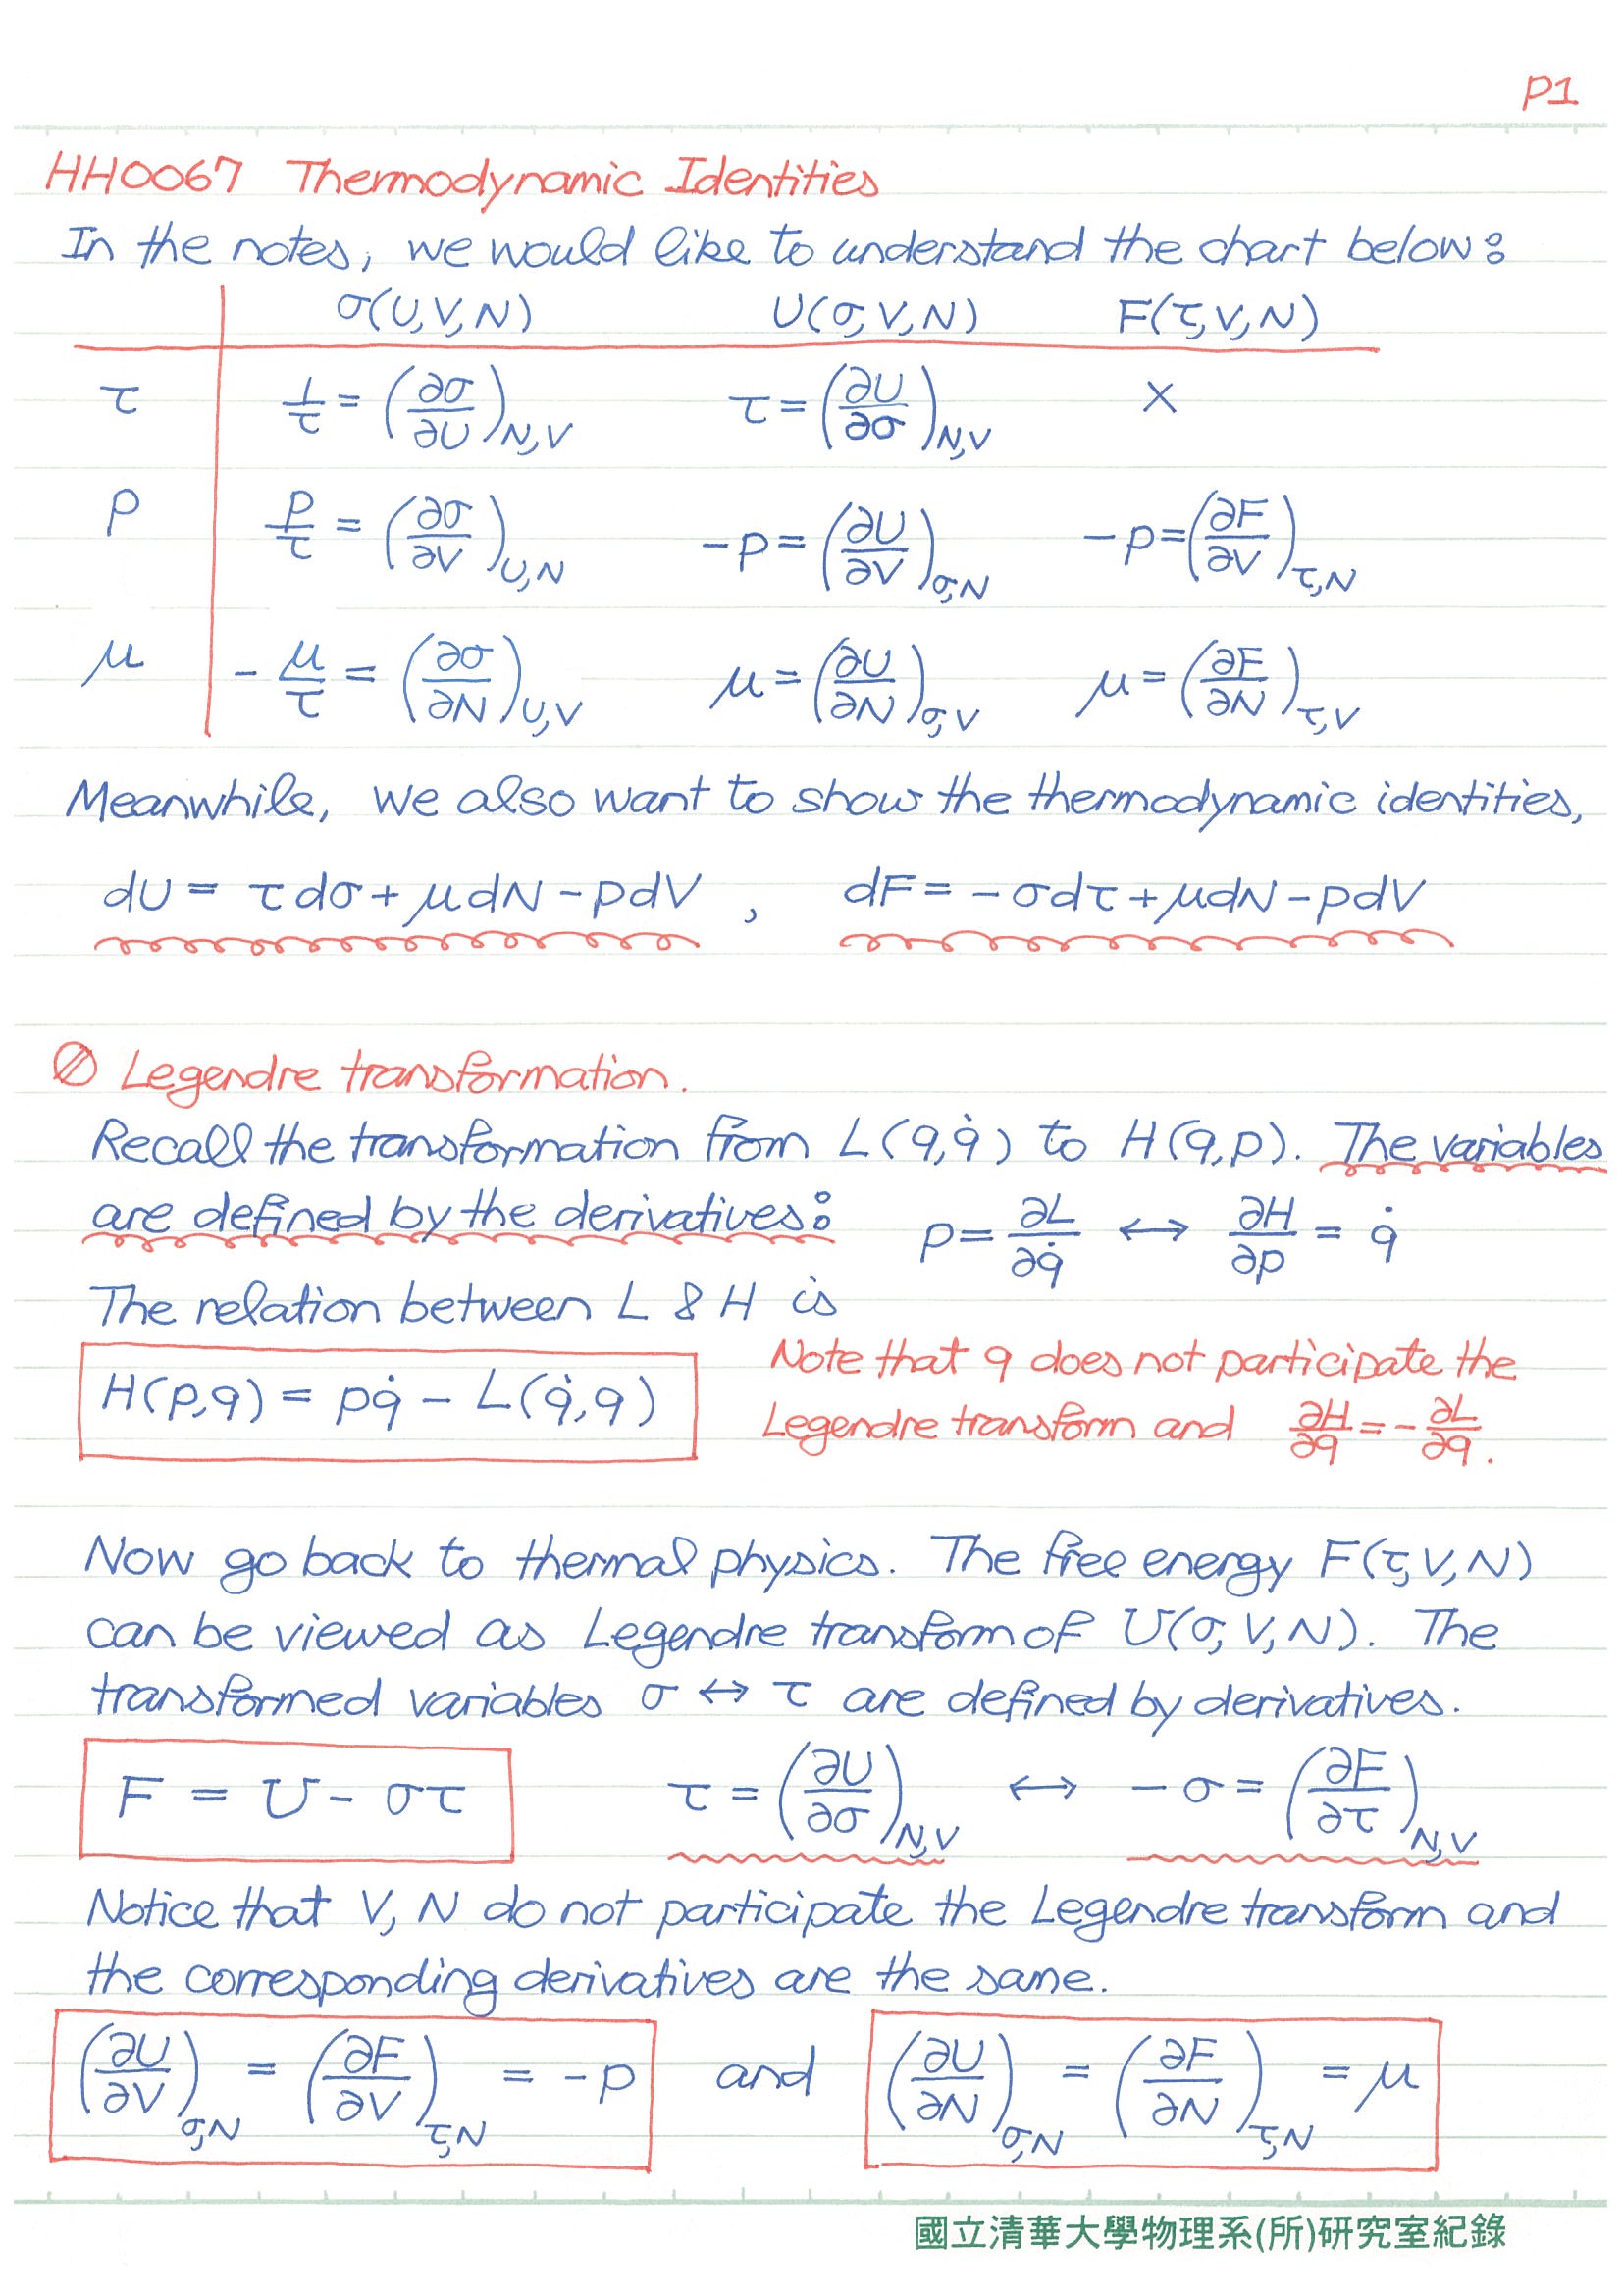 P1
HH0067 Thermodynamic Identities
In the notes, we would like to understand the chart below:
σ(U,V,N) U(σ,V,N) F(τ,V,N)
τ 1/τ = (∂σ/∂U)_N,V τ = (∂U/∂σ)_N,V ×
p p/τ = (∂σ/∂V)_U,N -p = (∂U/∂V)_σ,N -p = (∂F/∂V)_τ,N
μ - μ/τ = (∂σ/∂N)_U,V μ = (∂U/∂N)_σ,V μ = (∂F/∂N)_τ,V
Meanwhile, we also want to show the thermodynamic identities,
dU = τdσ + μdN - pdV , dF = -σdτ + μdN - pdV
∅ Legendre transformation.
Recall the transformation from L(q,q̇) to H(q,p). The variables
are defined by the derivatives: p = ∂L/∂q̇ ↔ ∂H/∂p = q̇
The relation between L & H is
H(p,q) = pq̇ - L(q̇,q)
Note that q does not participate the
Legendre transform and ∂H/∂q = - ∂L/∂q.
Now go back to thermal physics. The free energy F(τ,V,N)
can be viewed as Legendre transform of U(σ,V,N). The
transformed variables σ ↔ τ are defined by derivatives.
F = U - στ τ = (∂U/∂σ)_N,V ↔ -σ = (∂F/∂τ)_N,V
Notice that V, N do not participate the Legendre transform and
the corresponding derivatives are the same.
(∂U/∂V)_σ,N = (∂F/∂V)_τ,N = -p and (∂U/∂N)_σ,N = (∂F/∂N)_τ,N = μ
國立清華大學物理系(所)研究室紀錄